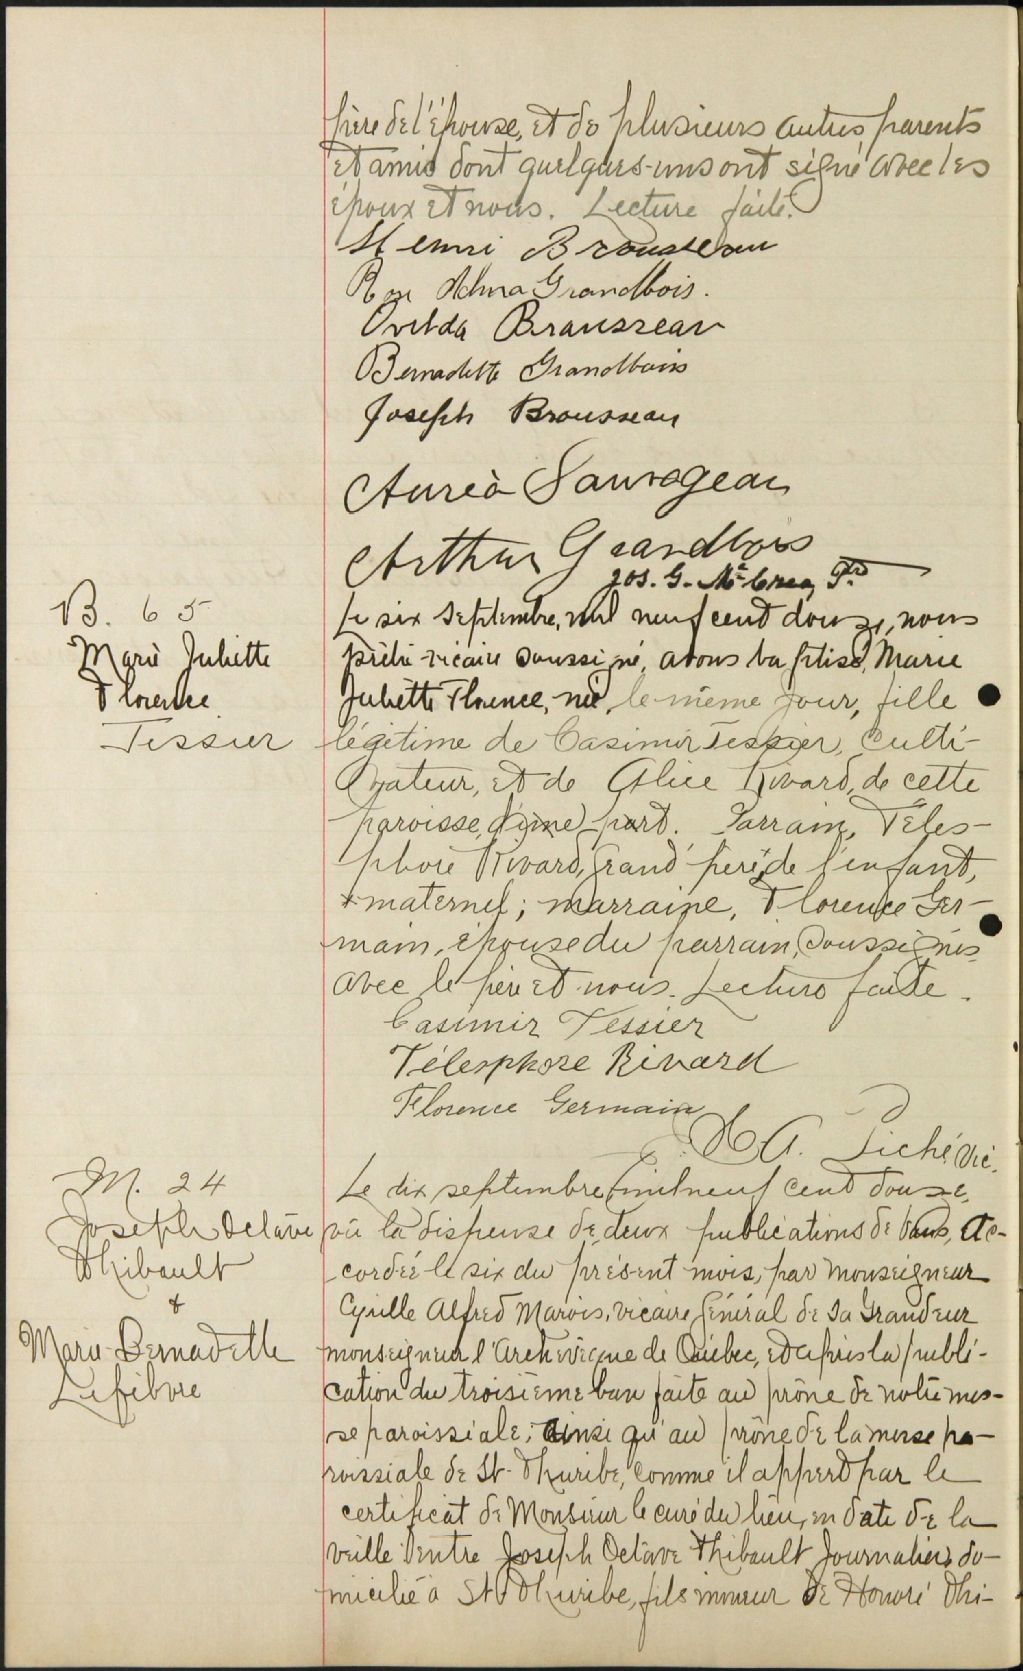 père de l'épouse, et de plusieurs autres parents
et amis dont quelques-uns ont signé avec les
époux et nous. Lecture faite.
Henri Brousseau
Rose Alma Grandbois.
Ovilda Brousseau
Bernadette Grandbois
Joseph Brousseau
Auréa Sauvageau
Arthur Grandbois
Jos. G. McCrea, Ptre
B. 65
Marie Juliette
Florence
Tessier
Le six septembre, mil neuf cent douze, nous
prêtre vicaire soussigné, avons baptisé, Marie
Juliette Florence, née, le même jour, fille
légitime de Casimir Tessier, culti-
vateur, et de Alice Rivard, de cette
paroisse, d'une part. Parrain, Téles-
phore Rivard, grand'père, de l'enfant,
+ maternel; marraine, Florence Ger-
main, épouse du parrain, soussignés
avec le père et nous. Lecture faite.
Casimir Tessier
Télesphore Rivard
Florence Germain
A. Piché, Vic.
M. 24
Joseph Octave
Thibault
+
Marie-Bernadette
Lefèbvre
Le dix septembre, mil neuf cent douze,
vu la dispense de deux publications de bans, ac-
cordée le six du présent mois, par Monseigneur
Cyrille Alfred Marois, vicaire général de Sa Grandeur
monseigneur l'Archevêque de Québec, et après la publi-
cation du troisième ban faite au prône de notre mes-
se paroissiale; ainsi qu'au prône de la messe pa-
roissiale de St-Thuribe, comme il appert par le
certificat de Monsieur le curé du lieu, en date de la
veille entre Joseph Octave Thibault Journalier, do-
micilié à St Thuribe, fils mineur de Honoré Thi-